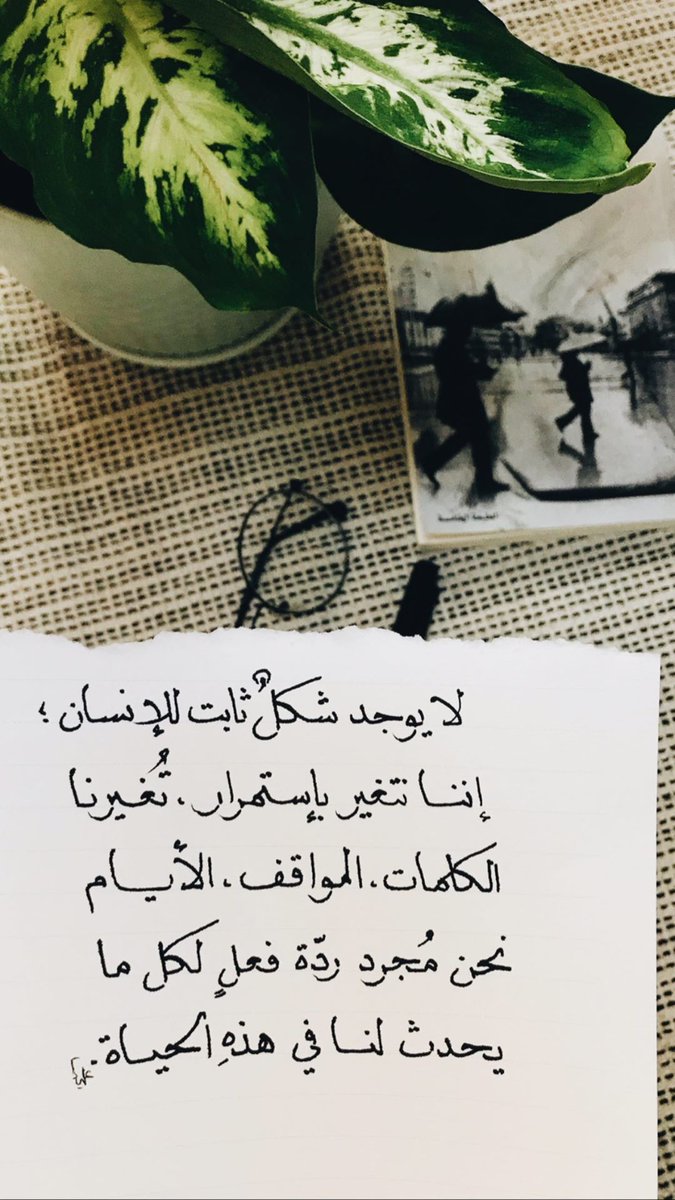 الطبعة الخامسة
لا يوجد شكلٌ ثابت للإنسان ؛
إننا نتغير بإستمرار، تُغيرنا
الكلمات، المواقف، الأيام
نحن مُجرد ردّة فعلٍ لكل ما
يحدث لنا في هذهِ الحياة.